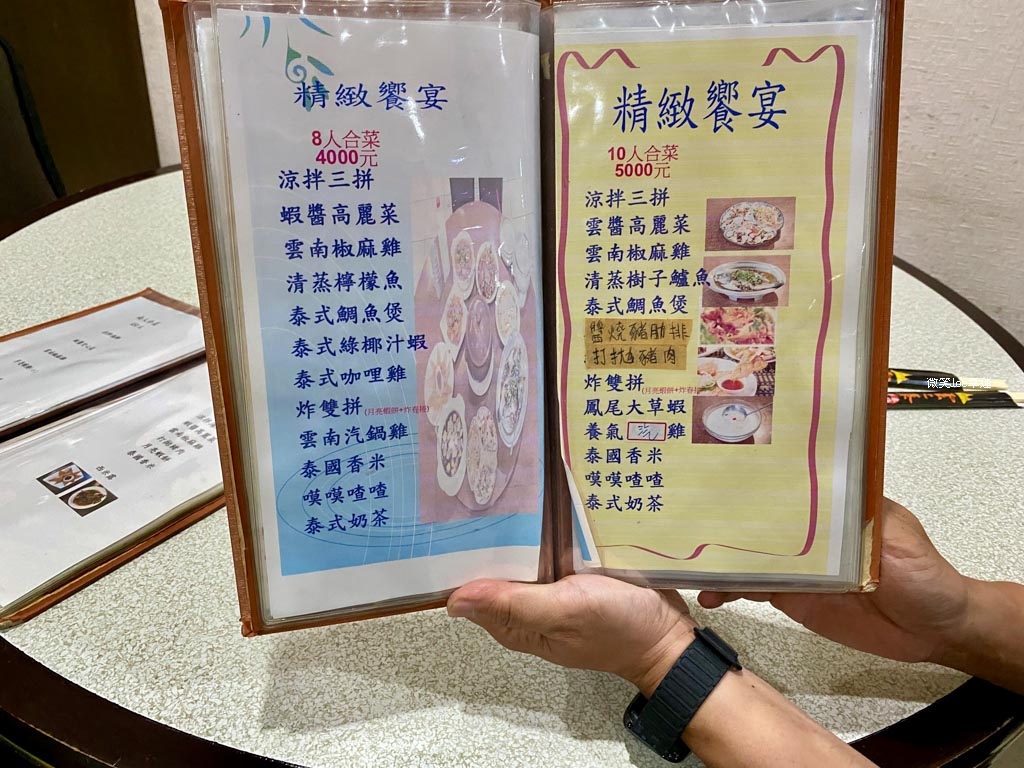 精緻饗宴
8人合菜
4000元
涼拌三拼
蝦醬高麗菜
雲南椒麻雞
清蒸檸檬魚
泰式鯛魚煲
泰式綠椰汁蝦
泰式咖哩雞
炸雙拼(月亮蝦餅+炸春捲)
雲南汽鍋雞
泰國香米
嘆嘆喳喳
泰式奶茶
精緻饗宴
10人合菜
5000元
涼拌三拼
雲醬高麗菜
雲南椒麻雞
清蒸樹子鱸魚
泰式鯛魚煲
醬燒豬肋排
打拋豬肉
炸雙拼(月亮蝦餅+炸春捲)
鳳尾大草蝦
養氣 雞
泰國香米
嘆嘆喳喳
泰式奶茶
月亮蝦餅
泰國香米